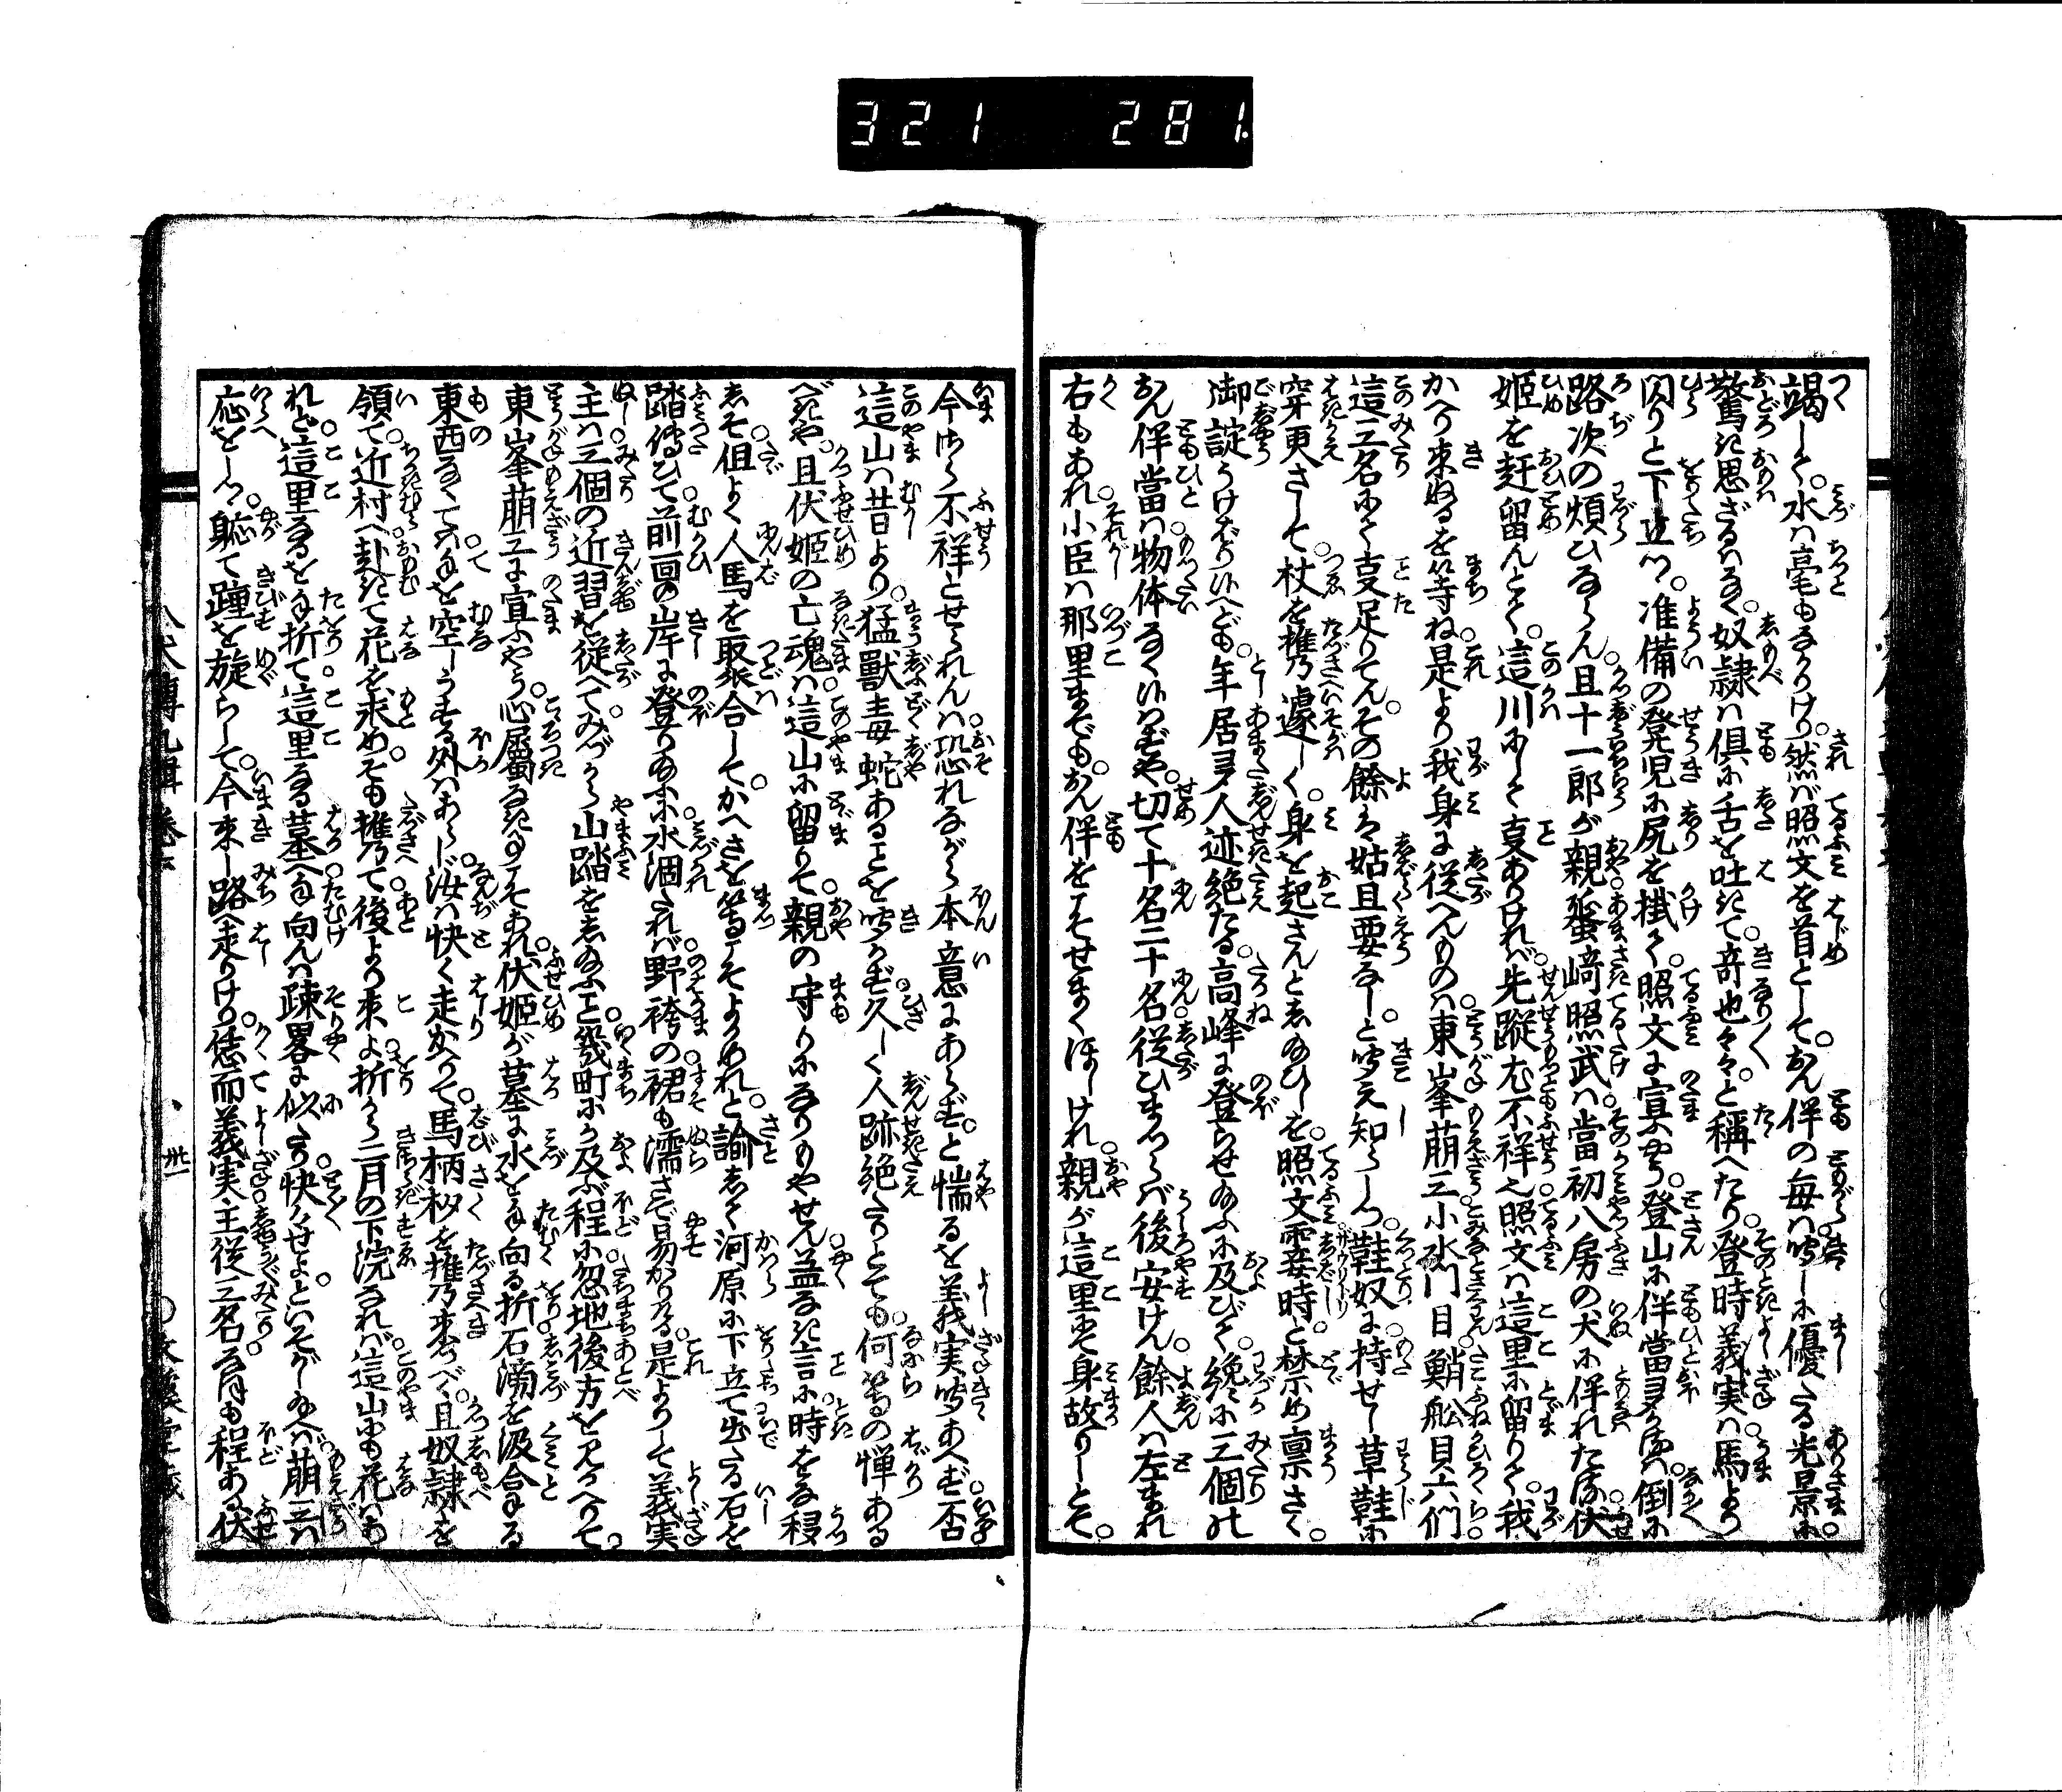 321 281.
竭して。水は毫もなかりけり。然ば照文を首として。おん伴の毎は吐しに優たる光景に
驚き思ざるはなく。奴隷は倶に舌を吐きて。奇也々々と称へたり。登時義実は馬より
閃りと下立つ。准備の登児に尻を掛て。照文に宣ふやう。登山に伴當多かるは。倒に
路次の煩ひならん。且十一郎が親蜑﨑照武は。當初八房の犬に伴れたる伏
姫を赶留んとて。這川にして事ありければ。先蹤尤不祥也。照文は這里に留りて。我
かへり来ぬるを等ね。是より我身に従へんものは。東峯萌三小水門目鮹舩貝六們
這三名にて事足りてん。その餘は姑且要なしと吩え知らしつ。鞋奴に持せし草鞋に
穿更さして。杖を携乃遽しく。身を起さんとし給ひしを。照文霎時と禁め禀さく。
御諚うけ給はり候へども。年居多人迹絶たる。高峰に登らせ給ふに及びて。纔に三個の
おん伴當は。物体なく候はずや。切て十名二十名従ひまつらば後安けん。餘人は左まれ
右もあれ。小臣は那里までも。おん伴をこそせまくほしけれ。親が這里にて身故りしとて。
今さら不祥とせられんは。恐れながら本意にあらず。と惴るを義実吩あへず。否
這山は昔より。猛獣毒蛇あることを吩かず。久しく人跡絶たりとても。何等の憚ある
べきや。且伏姫の亡魂は。這山に留りて。親の守りになりもやせん。益なき言に時をな移
しそ。但よく人馬を取聚合して。かへさを等こそよかめれ。と諭しつ。河原に下立て出たる石を
踏傳ひて。前面の岸に登り給ふに。水涸たれば。野袴の裾も濡さで易かりける。是よりして義実
主は。三個の近習を従へて。みづから山踏をし給ふこと。幾町にか及ぶ程に。忽地後方を見かへりて。
東峯萌三に宣ふやう。心屬なきことこそあれ。伏姫が墓に水を手向る。折石滴を汲合する
東西なくては。手を空しうする外はあらじ。汝は快く走かへりて。馬柄杓を携乃来つべく。且奴隷を
領て。近村へ赴きて花を求めても。携乃て後より来よ。折から二月の下浣なれば。這山にも花はあ
れど。這里なるを手折て。這里なる墓へ手向んは疎畧に似たり。快々せよ。といそがし給へば。萌三は
応をしつ。軈て踵を旋らして。今来し路へ走りけり。恁而義実主従三名。なほも程ある伏
八犬傳九輯巻五
卅一
○文溪堂藏